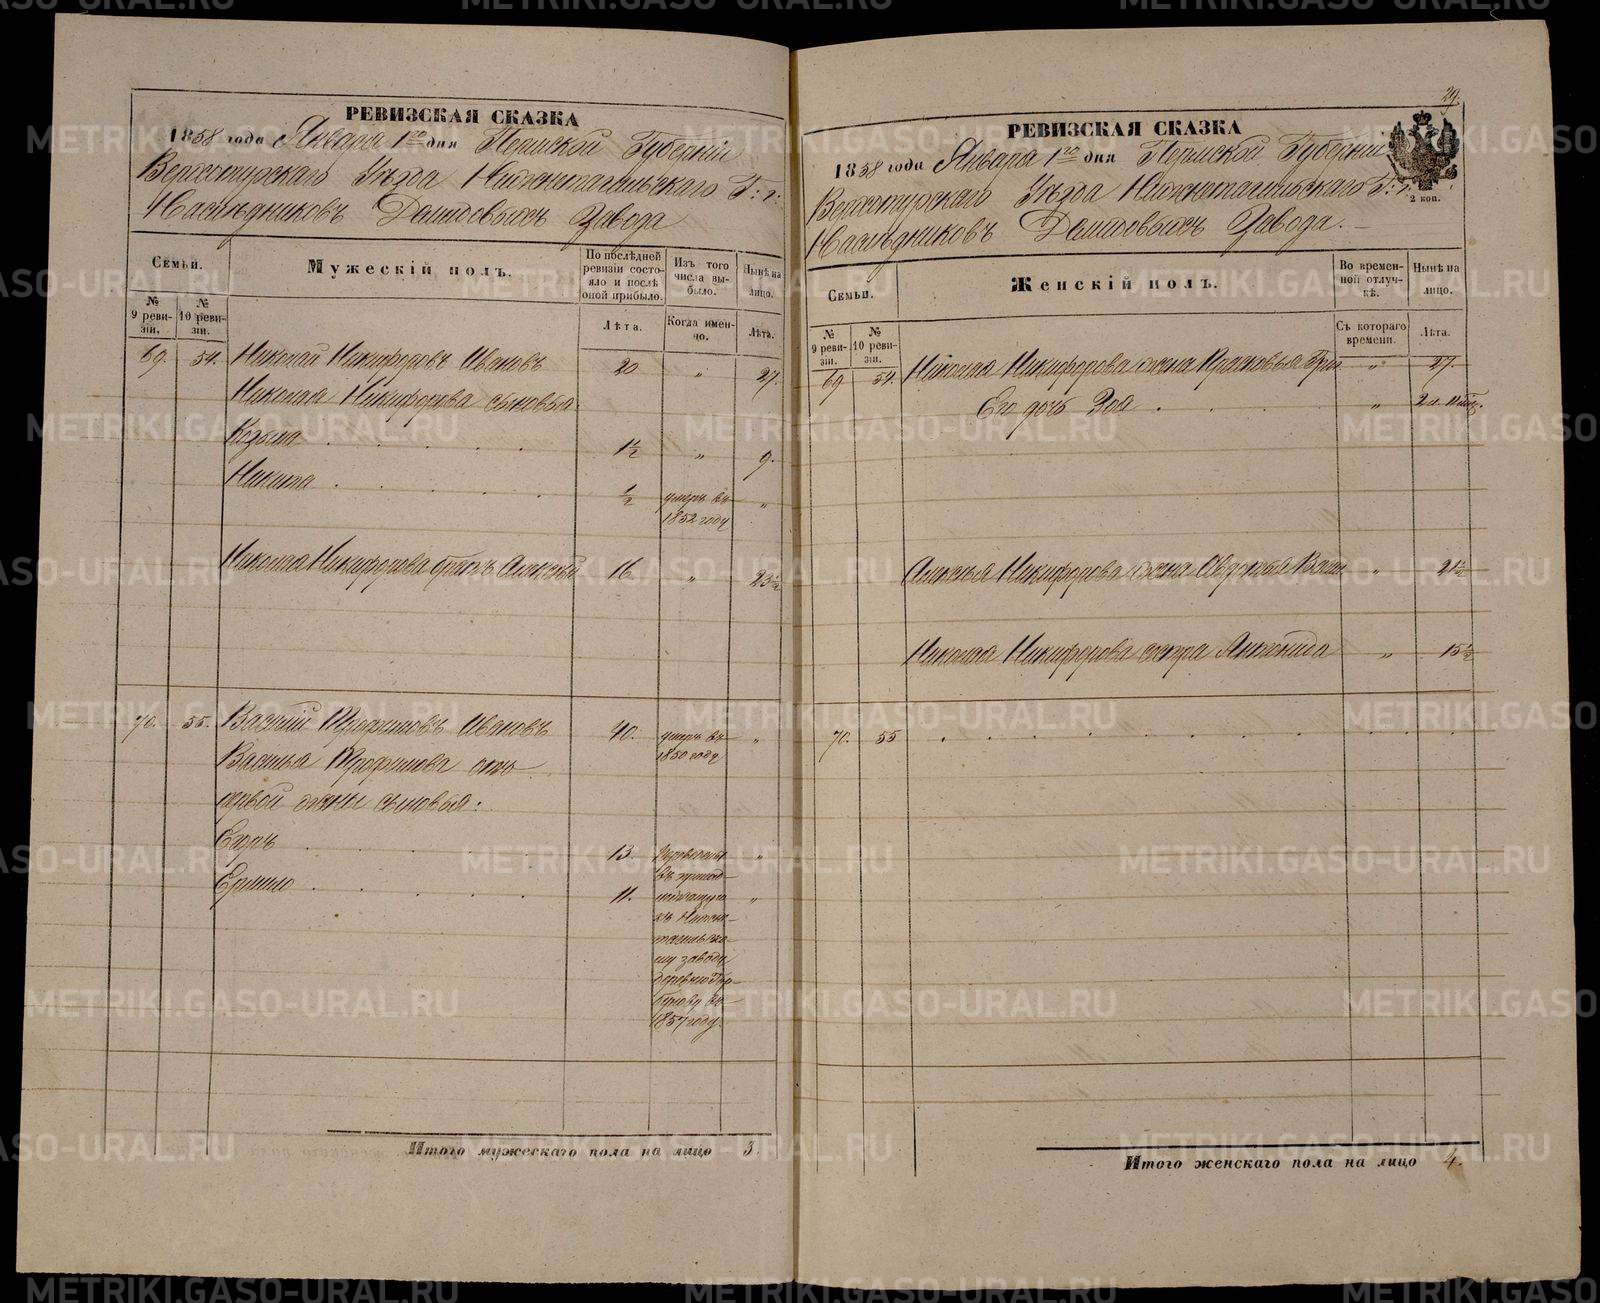 РЕВИЗСКАЯ СКАЗКА
1858 года Января 1го дня Пермской Губерніи
Верхотурскаго Уѣзда Нижнетагильскаго Г: г:
Наслѣдниковъ Демидовыхъ Завода
Семьи.
Мужескій полъ.
По послѣдней ревизіи состояло и послѣ оной прибыло.
Изъ того числа выбыло.
Нынѣ на лицо.
№ 9 ревизіи.
№ 10 ревизіи.
Лѣта.
Когда именно.
Лѣта.
69. 54. Николай Никифоровъ Ивановъ 20 „ 27.
Николая Никифорова сыновья:
Козьма 1½ „ 9.
Никита ½ умеръ въ 1852 году „
Николая Никифорова братъ Алексѣй 16. „ 23½
70. 55. Василій Трофимовъ Ивановъ 40. умеръ въ 1850 году „
Василья Трофимова отъ
первой жены сыновья:
Карпъ 13. „
Ермило 11. „
въ принад-
лежащую
къ Нижне-
тагильско-
му заводу
деревню Гор-
бунову въ
1857 году.
Итого мужескаго пола на лицо 3.
29.
РЕВИЗСКАЯ СКАЗКА
1858 года Января 1го дня Пермской Губерніи
Верхотурскаго Уѣзда Нижнетагильскаго Г: г:
Наслѣдниковъ Демидовыхъ Завода.
2 коп.
Семьи.
Женскій полъ.
Во временной отлучкѣ.
Нынѣ на лицо.
№ 9 ревизіи.
№ 10 ревизіи.
Съ котораго времени.
Лѣта.
69 54. Николая Никифорова жена Прасковья Гри „ 27.
Его дочь Зоя „
Алексѣя Никифорова жена Авдотья Васи „ 21½
Николая Никифорова сестра „ 15½
70. 55
Итого женскаго пола на лицо 4.
METRIKI.GASO-URAL.RU